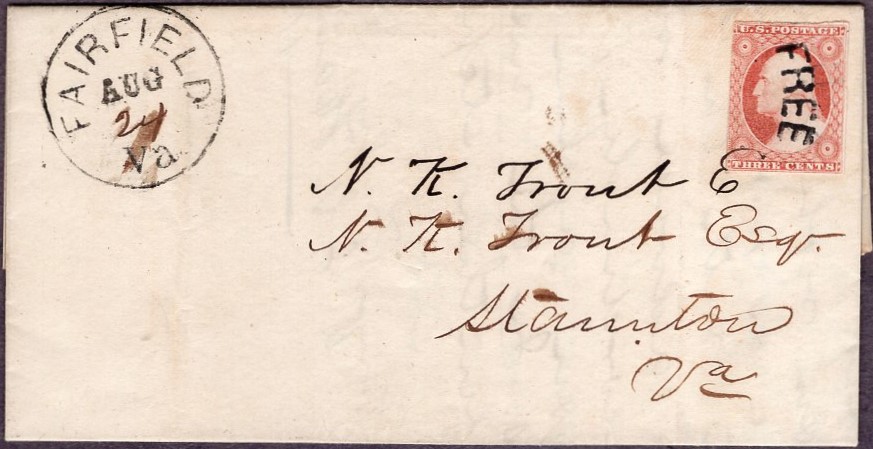 FAIRFIELD
AUG
24
Va
U.S. POSTAGE
FREE
THREE CENTS
N. K. Trout E
N. K. Trout Esq.
Staunton
Va